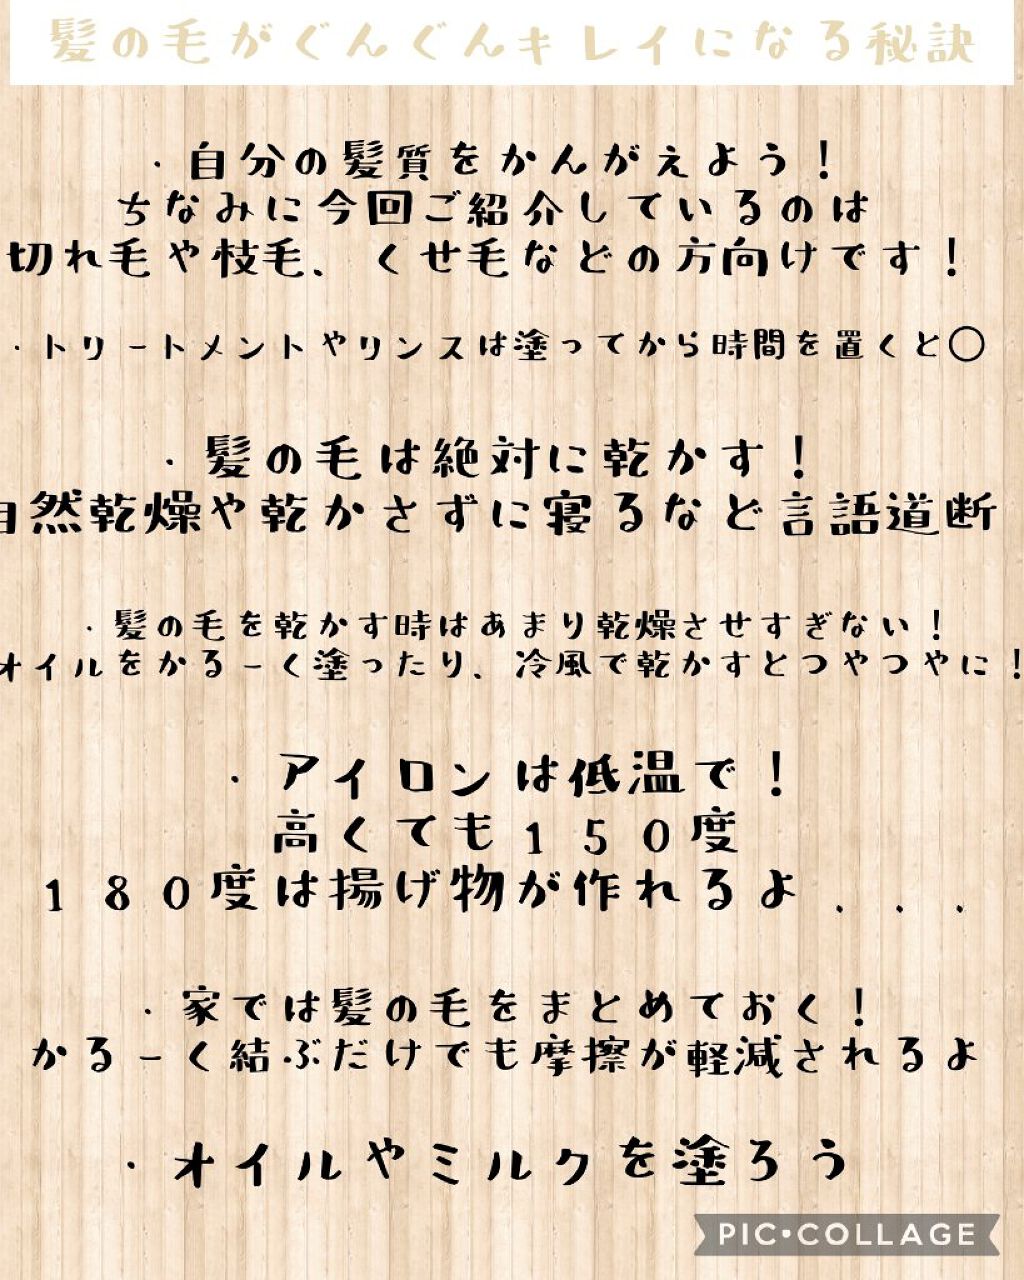 髪の毛がぐんぐんキレイになる秘訣
・自分の髪質をかんがえよう！
ちなみに今回ご紹介しているのは
切れ毛や枝毛、くせ毛などの方向けです！
・トリートメントやリンスは塗ってから時間を置くと◯
・髪の毛は絶対に乾かす！
自然乾燥や乾かさずに寝るなど言語道断
・髪の毛を乾かす時はあまり乾燥させすぎない！
オイルをかるーく塗ったり、冷風で乾かすとつやつやに！
・アイロンは低温で！
高くても150度
180度は揚げ物が作れるよ...
・家では髪の毛をまとめておく！
かるーく結ぶだけでも摩擦が軽減されるよ
・オイルやミルクを塗ろう
PIC•COLLAGE